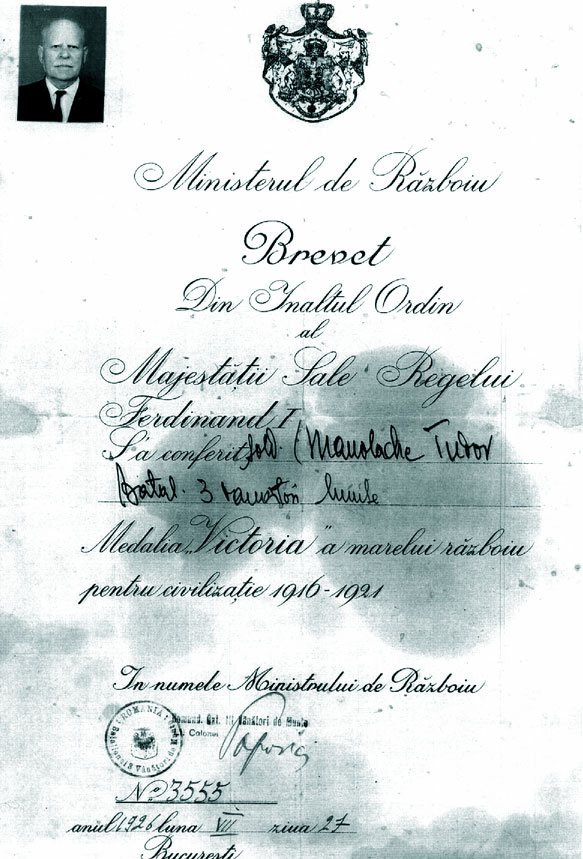 Ministerul de Războiu
Brevet
Din Inaltul Ordin
al
Majestății Sale Regelui
Ferdinand I
S'a conferit Sold. Manolache Tudor
Batal. 3
Medalia „Victoria" a marelui războiu
pentru civilizație 1916-1921
In numele Ministrului de Războiu
Comand. Bat. III Vânători de Munte
Colonel
ROMANIA
No 3555
anul 1926 luna VII ziua 27
București